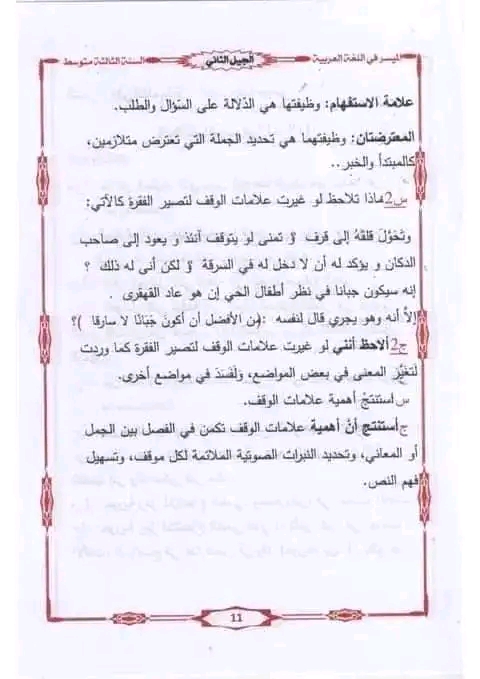 الميسر في اللغة العربية
الجيل الثاني
السنة الثالثة متوسط
علامة الاستفهام: وظيفتها هي الدّلالة على السّؤال والطلب.
المعترضتان: وظيفتهما هي تحديد الجملة التي تعترض متلازمين،
كالمبتدأ والخبر..
س2ماذا تلاحظ لو غيرت علامات الوقف لتصير الفقرة كالآتي:
وتحَوّل قلقهُ إلى قرف و تمنى لو يتوقف آنئذ و يعود إلى صاحب
الدكان و يؤكد له أن لا دخل له في السرقة و لكن أنى له ذلك ؟
إنه سيكون جبانا في نظر أطفال الحي إن هو عاد القهقرى .
إلاّ أنه وهو يجري قال لنفسه :(من الأفضل أن أكونَ جَبَانًا لا سارقا )؟
ج2ألاحظ أنني لو غيرت علامات الوقف لتصير الفقرة كما وردت
لَتغيَّرَ المعنى في بعض المواضع، وَلَفَسَدَ في مواضع أخرى.
س استنتجْ أهمية علامات الوقف.
ج أستنتج أنّ أهمية علامات الوقف تكمن في الفصل بين الجمل
أو المعاني، وتحديد النبرات الصوتية الملائمة لكل موقف، وتسهيل
فهم النص.
11